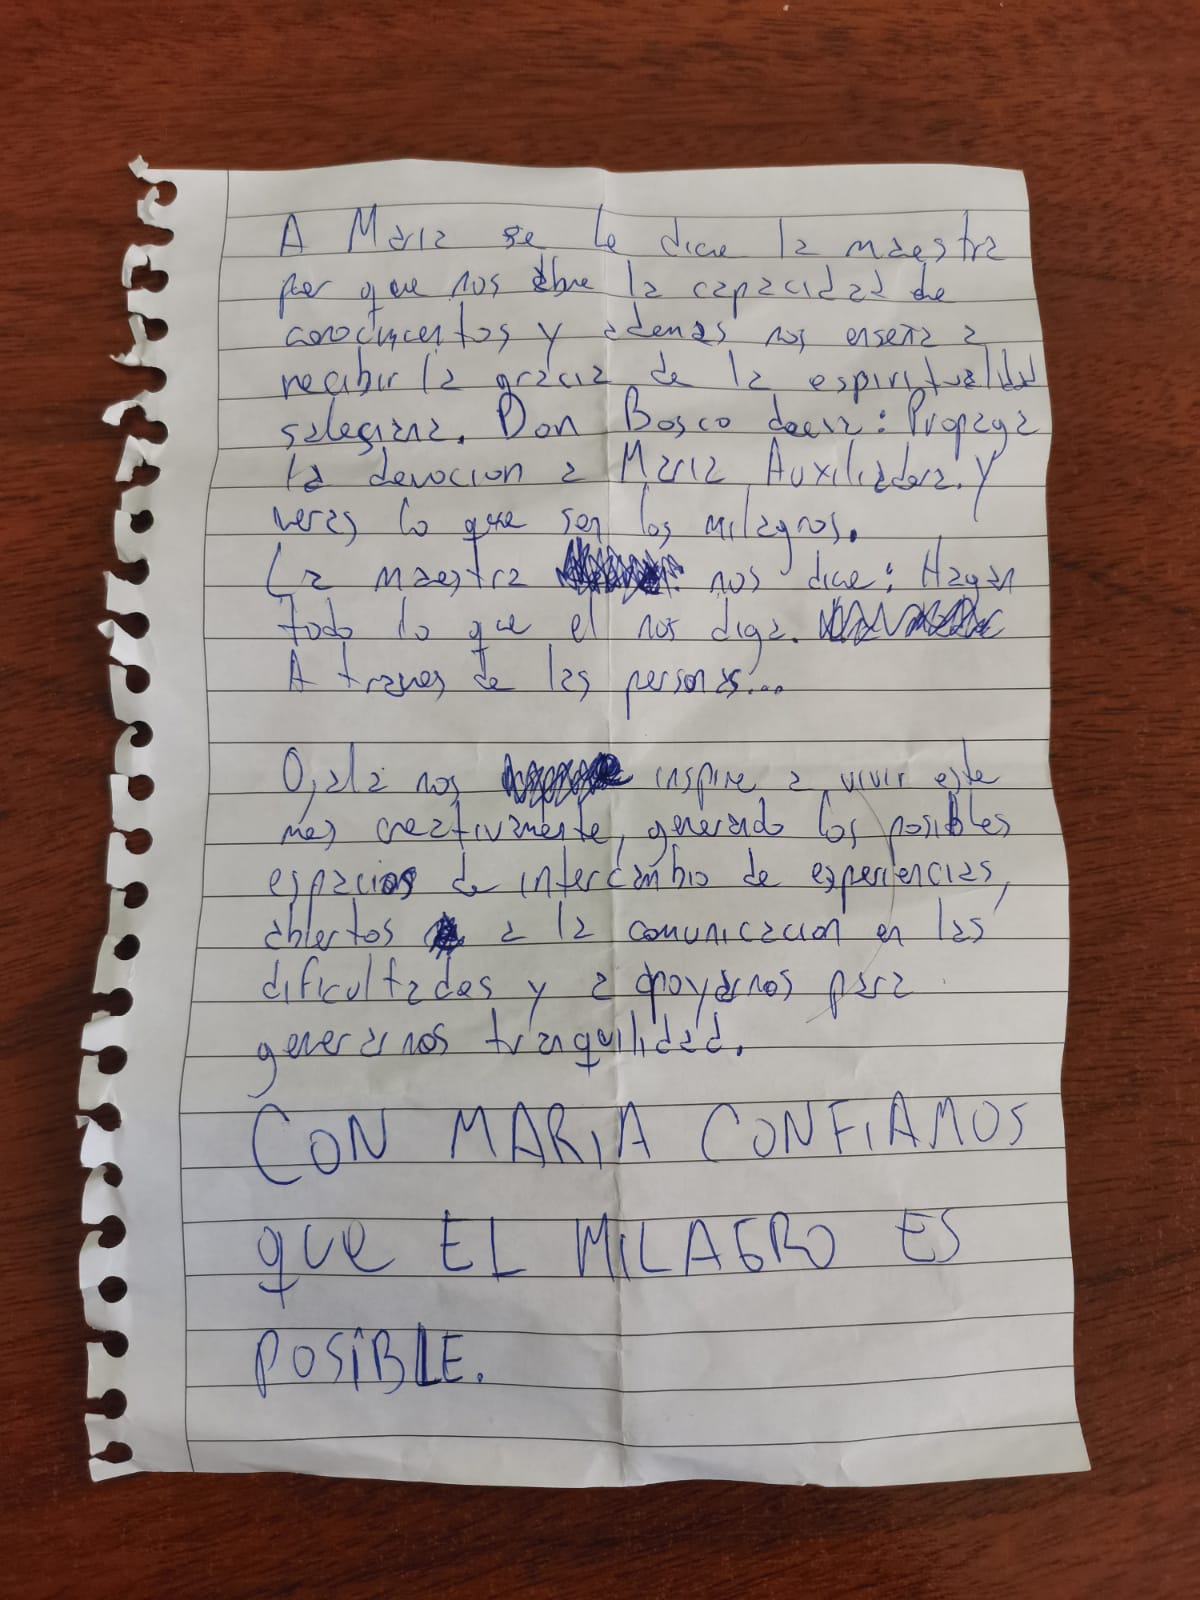 A Maria se le dice la maestra
por que nos abre la capacidad de
conocimientos y ademas nos enseña a
recibir la gracia de la espiritualidad
salesiana. Don Bosco decia: Propaga
la devocion a Maria Auxiliadora. y
veras lo que son los milagros.
La maestra nos dice: Hagan
todo lo que el nos diga.
A traves de las personas...
Ojala nos inspire a vivir este
mes creativamente, generando los posibles
espacios de intercambio de experiencias,
abiertos a la comunicacion en las
dificultades y a apoyarnos para
generarnos tranquilidad.
CON MARIA CONFIAMOS
que EL MILAGRO ES
POSIBLE.